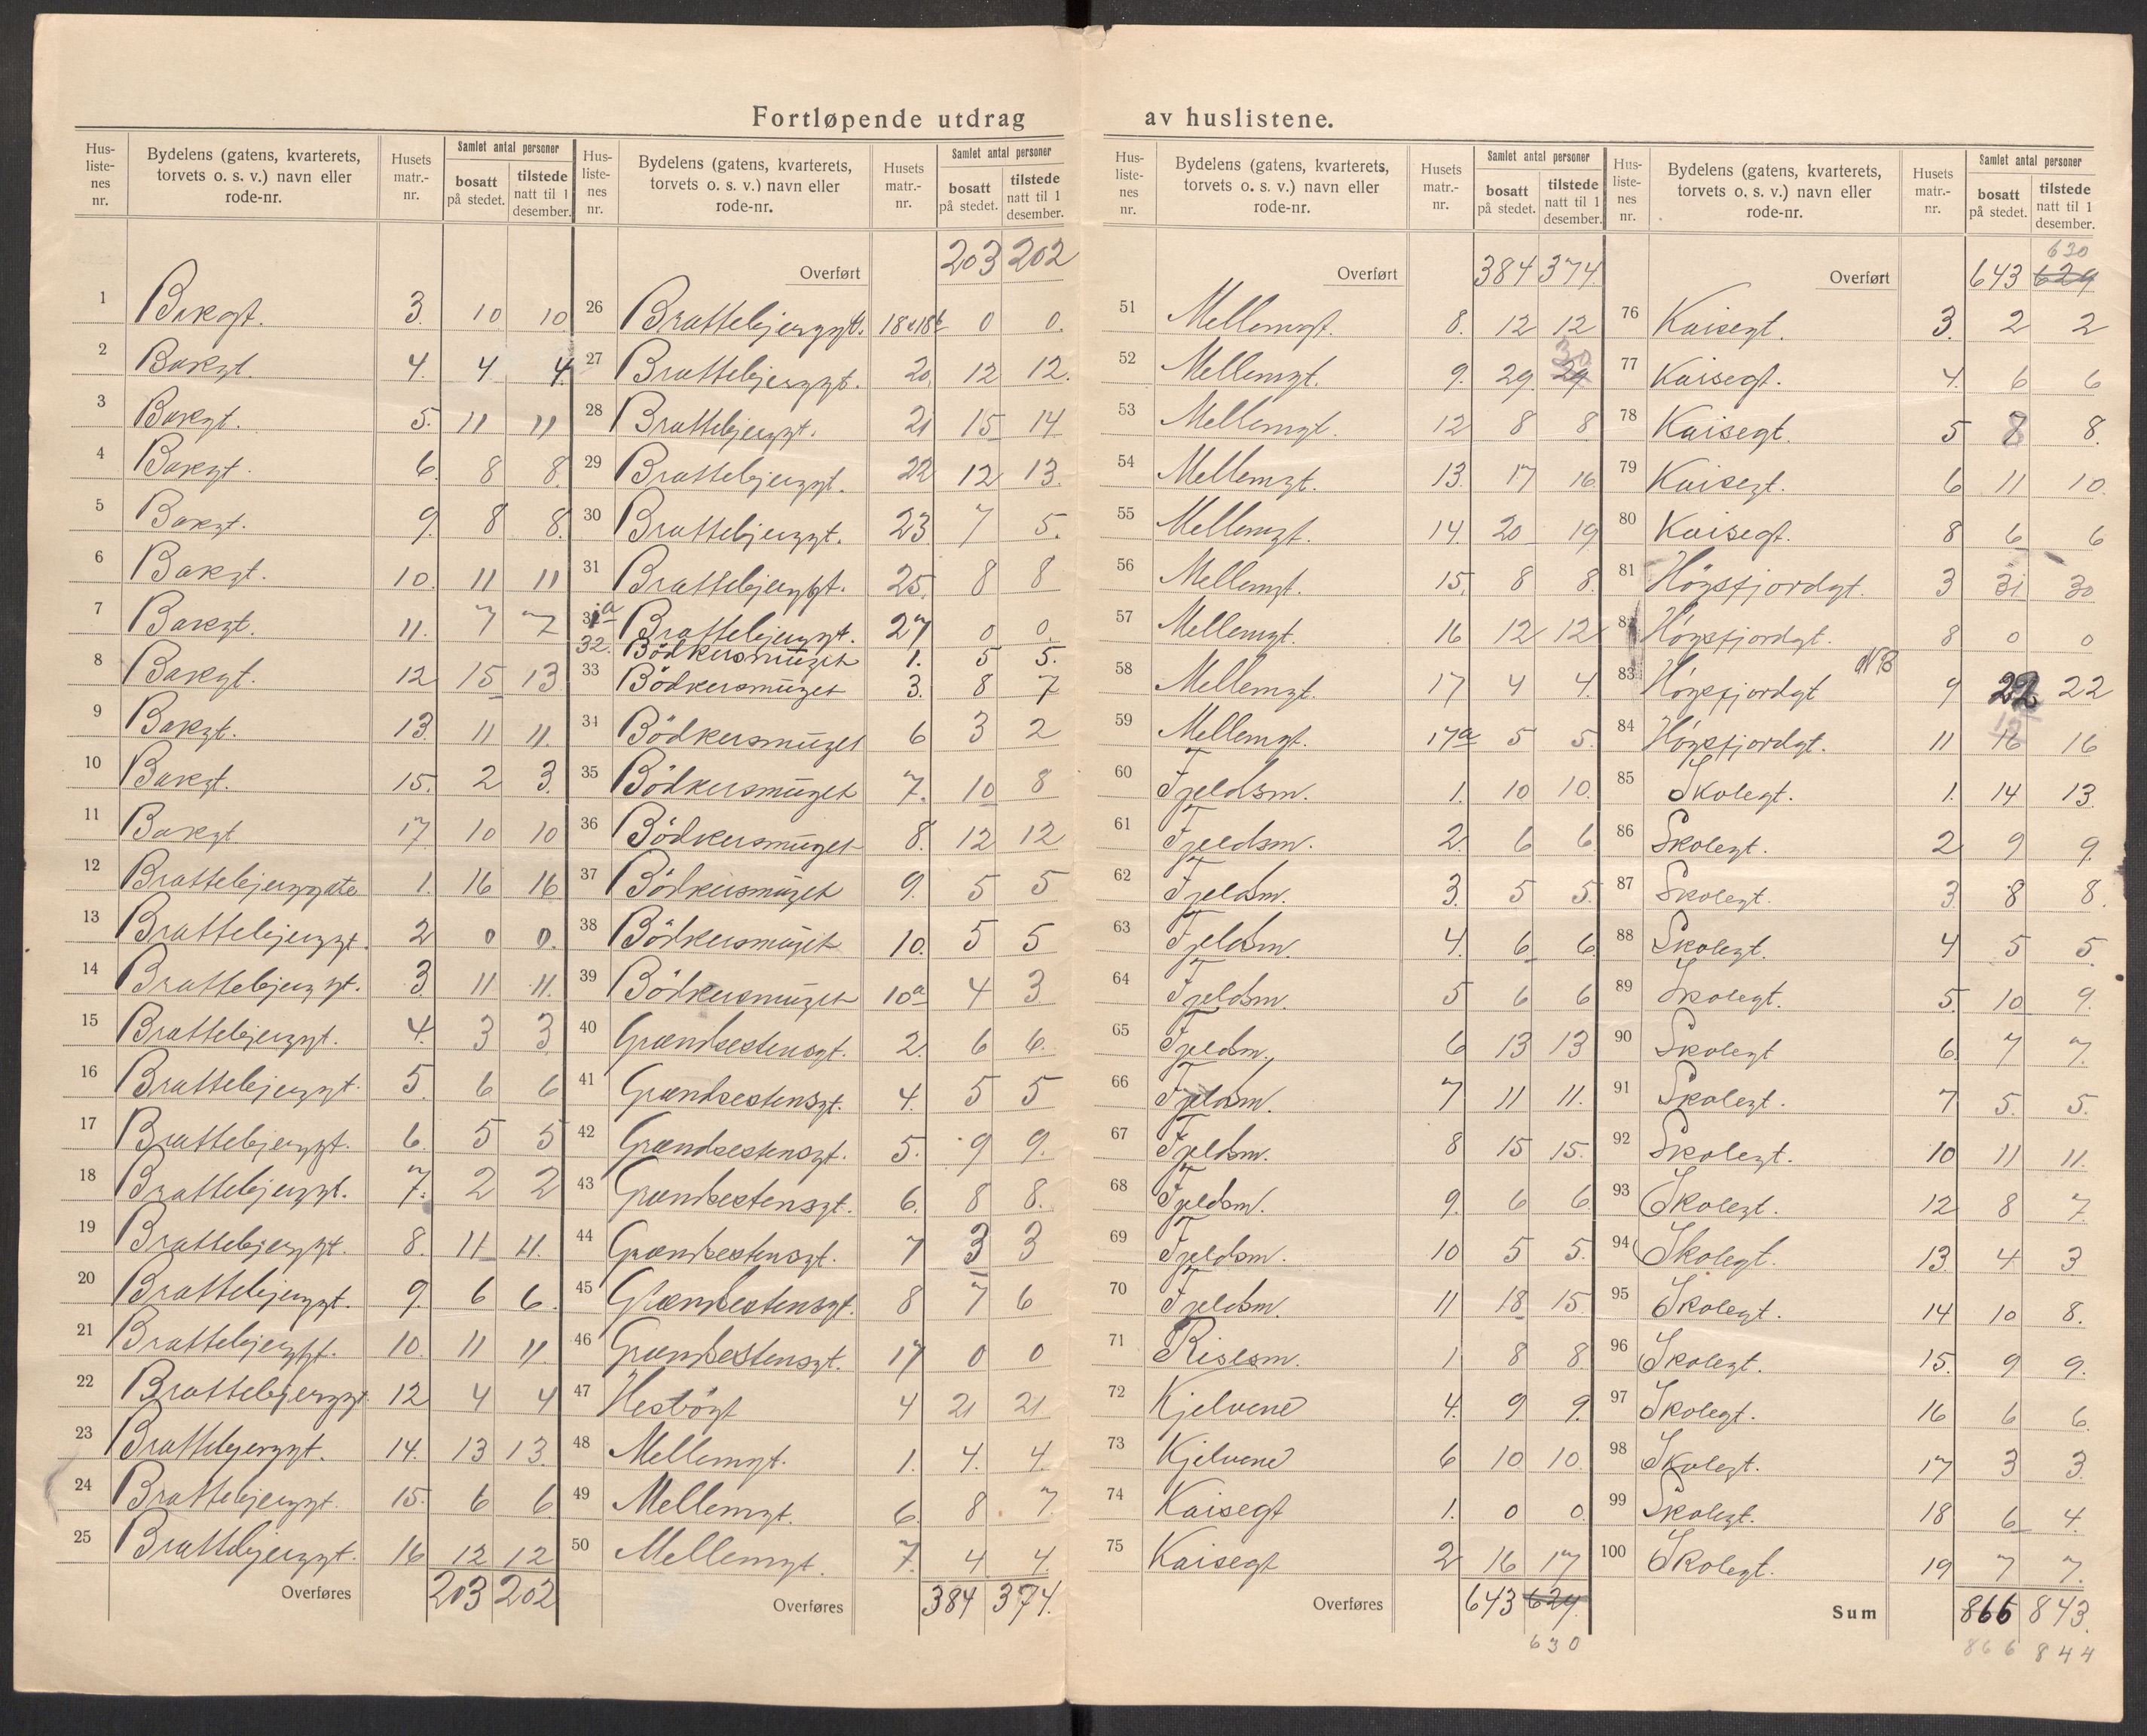 Fortløpende utdrag av huslistene.
Hus-listenes nr. | Bydelens (gatens, kvarterets, torvets o. s. v.) navn eller rode-nr. | Husets matr.-nr. | Samlet antal personer | bosatt på stedet. | tilstede natt til 1 desember.
1 Bakgt. 3. 10 10
2 Bakgt. 4. 4 4
3 Bakgt. 5. 11 11
4 Bakgt. 6. 8 8.
5 Bakgt. 9. 8 8.
6 Bakgt. 10. 11 11
7 Bakgt. 11. 7 7
8 Bakgt. 12 15 13
9 Bakgt. 13. 11 11.
10 Bakgt. 15. 2 3.
11 Bakgt 17. 10 10
12 Brattebjerggate 1. 16 16
13 Brattebjerggt. 2 0 0.
14 Brattebjerggt. 3. 11 11.
15 Brattebjerggt. 4. 3 3
16 Brattebjerggt. 5. 6 6
17 Brattebjerggt. 6. 5 5
18 Brattebjerggt. 7. 2 2
19 Brattebjerggt. 8. 11 11.
20 Brattebjerggt. 9. 6 6.
21 Brattebjerggt. 10. 11 11.
22 Brattebjerggt. 12 4 4
23 Brattebjerggt. 14. 13 13.
24 Brattebjerggt. 15. 6 6
25 Brattebjerggt. 16 12 12
Overføres 203 202
Hus-listenes nr. | Bydelens (gatens, kvarterets, torvets o. s. v.) navn eller rode-nr. | Husets matr.-nr. | Samlet antal personer | bosatt på stedet. | tilstede natt til 1 desember.
Overført 203 202
26 Brattebjerggt. 18 & 18b 0 0.
27 Brattebjerggt. 20. 12 12.
28 Brattebjerggt. 21 15 14
29 Brattebjerggt. 22 12 13.
30 Brattebjerggt. 23. 7 5.
31 Brattebjerggt. 25. 8 8
31a Brattebjerggt. 27 0 0.
32. Bödkersmuget 1. 5 5.
33 Bödkersmuget 3. 8 7
34 Bödkersmuget 6 3 2
35 Bödkersmuget 7. 10 8
36 Bödkersmuget 8. 12 12
37 Bödkersmuget 9. 5 5
38 Bödkersmuget 10. 5 5
39 Bödkersmuget 10a 4 3
40 Grændsestensgt. 2. 6 6.
41 Grændsestensgt. 4. 5 5
42 Grændsestensgt. 5. 9 9.
43 Grændsestensgt. 6. 8 8.
44 Grændsestensgt. 7 3 3
45 Grændsestensgt. 8 7 6
46 Grændsestensgt. 17 0 0
47 Hesbögt 4 21 21
48 Mellemgt. 1. 4. 4.
49 Mellemgt. 6. 8 7.
50 Mellemgt. 7. 4 4.
Overføres 384 374.
Hus-listenes nr. | Bydelens (gatens, kvarterets, torvets o. s. v.) navn eller rode-nr. | Husets matr.-nr. | Samlet antal personer | bosatt på stedet. | tilstede natt til 1 desember.
Overført 384 374.
51 Mellemgt. 8. 12 12
52 Mellemgt. 9. 29. 29 30
53 Mellemgt. 12 8 8
54 Mellemgt. 13. 17 16
55 Mellemgt. 14. 20 19
56 Mellemgt. 15. 8 8.
57 Mellemgt. 16 12 12
58 Mellemgt. 17 4 4.
59 Mellemgt. 17a 5 5.
60 Fjeldsm. 1. 10 10.
61 Fjeldsm. 2. 6 6.
62 Fjeldsm. 3. 5 5.
63 Fjeldsm. 4. 6 6.
64 Fjeldsm. 5 6 6
65 Fjeldsm. 6 13 13
66 Fjeldsm. 7 11 11.
67 Fjeldsm. 8 15 15.
68 Fjeldsm. 9. 6 6.
69 Fjeldsm. 10 5 5.
70 Fjeldsm. 11 18 15.
71 Rislsm. 1 8 8.
72 Kjelvene 4. 9 9.
73 Kjelvene 6 10 10.
74 Kaisegt 1. 0 0.
75 Kaisegt 2 16 17
Overføres 643 629.
630
Hus-listenes nr. | Bydelens (gatens, kvarterets, torvets o. s. v.) navn eller rode-nr. | Husets matr.-nr. | Samlet antal personer | bosatt på stedet. | tilstede natt til 1 desember.
630
Overført 643 629
76 Kaisegt. 3. 2 2
77 Kaisegt. 4. 6 6
78 Kaisegt. 5 8 8.
79 Kaisegt. 6 11 10.
80 Kaisegt. 8 6 6
81 Högsfjordgt. 3 31 30
82 Högsfjordgt. 8 0 0
83 Högsfjordgt NB 9 22 22
84 Högsfjordgt. 11 16 16
85 Skolegt. 1. 14 13.
86 Skolegt. 2 9 9.
87 Skolegt. 3. 8 8.
88 Skolegt. 4 5 5.
89 Skolegt. 5. 10 9.
90 Skolegt 6. 7 7.
91 Skolegt. 7 5. 5.
92 Skolegt. 10 11 11.
93 Skolegt. 12 8 7.
94 Skolegt. 13. 4 3
95 Skolegt. 14 10 8.
96 Skolegt. 15. 9 9.
97 Skolegt. 16 6 6.
98 Skolegt. 17 3 3.
99 Skolegt. 18 6 4.
100 Skolegt. 19 7 7.
Sum 866 843.
866 844